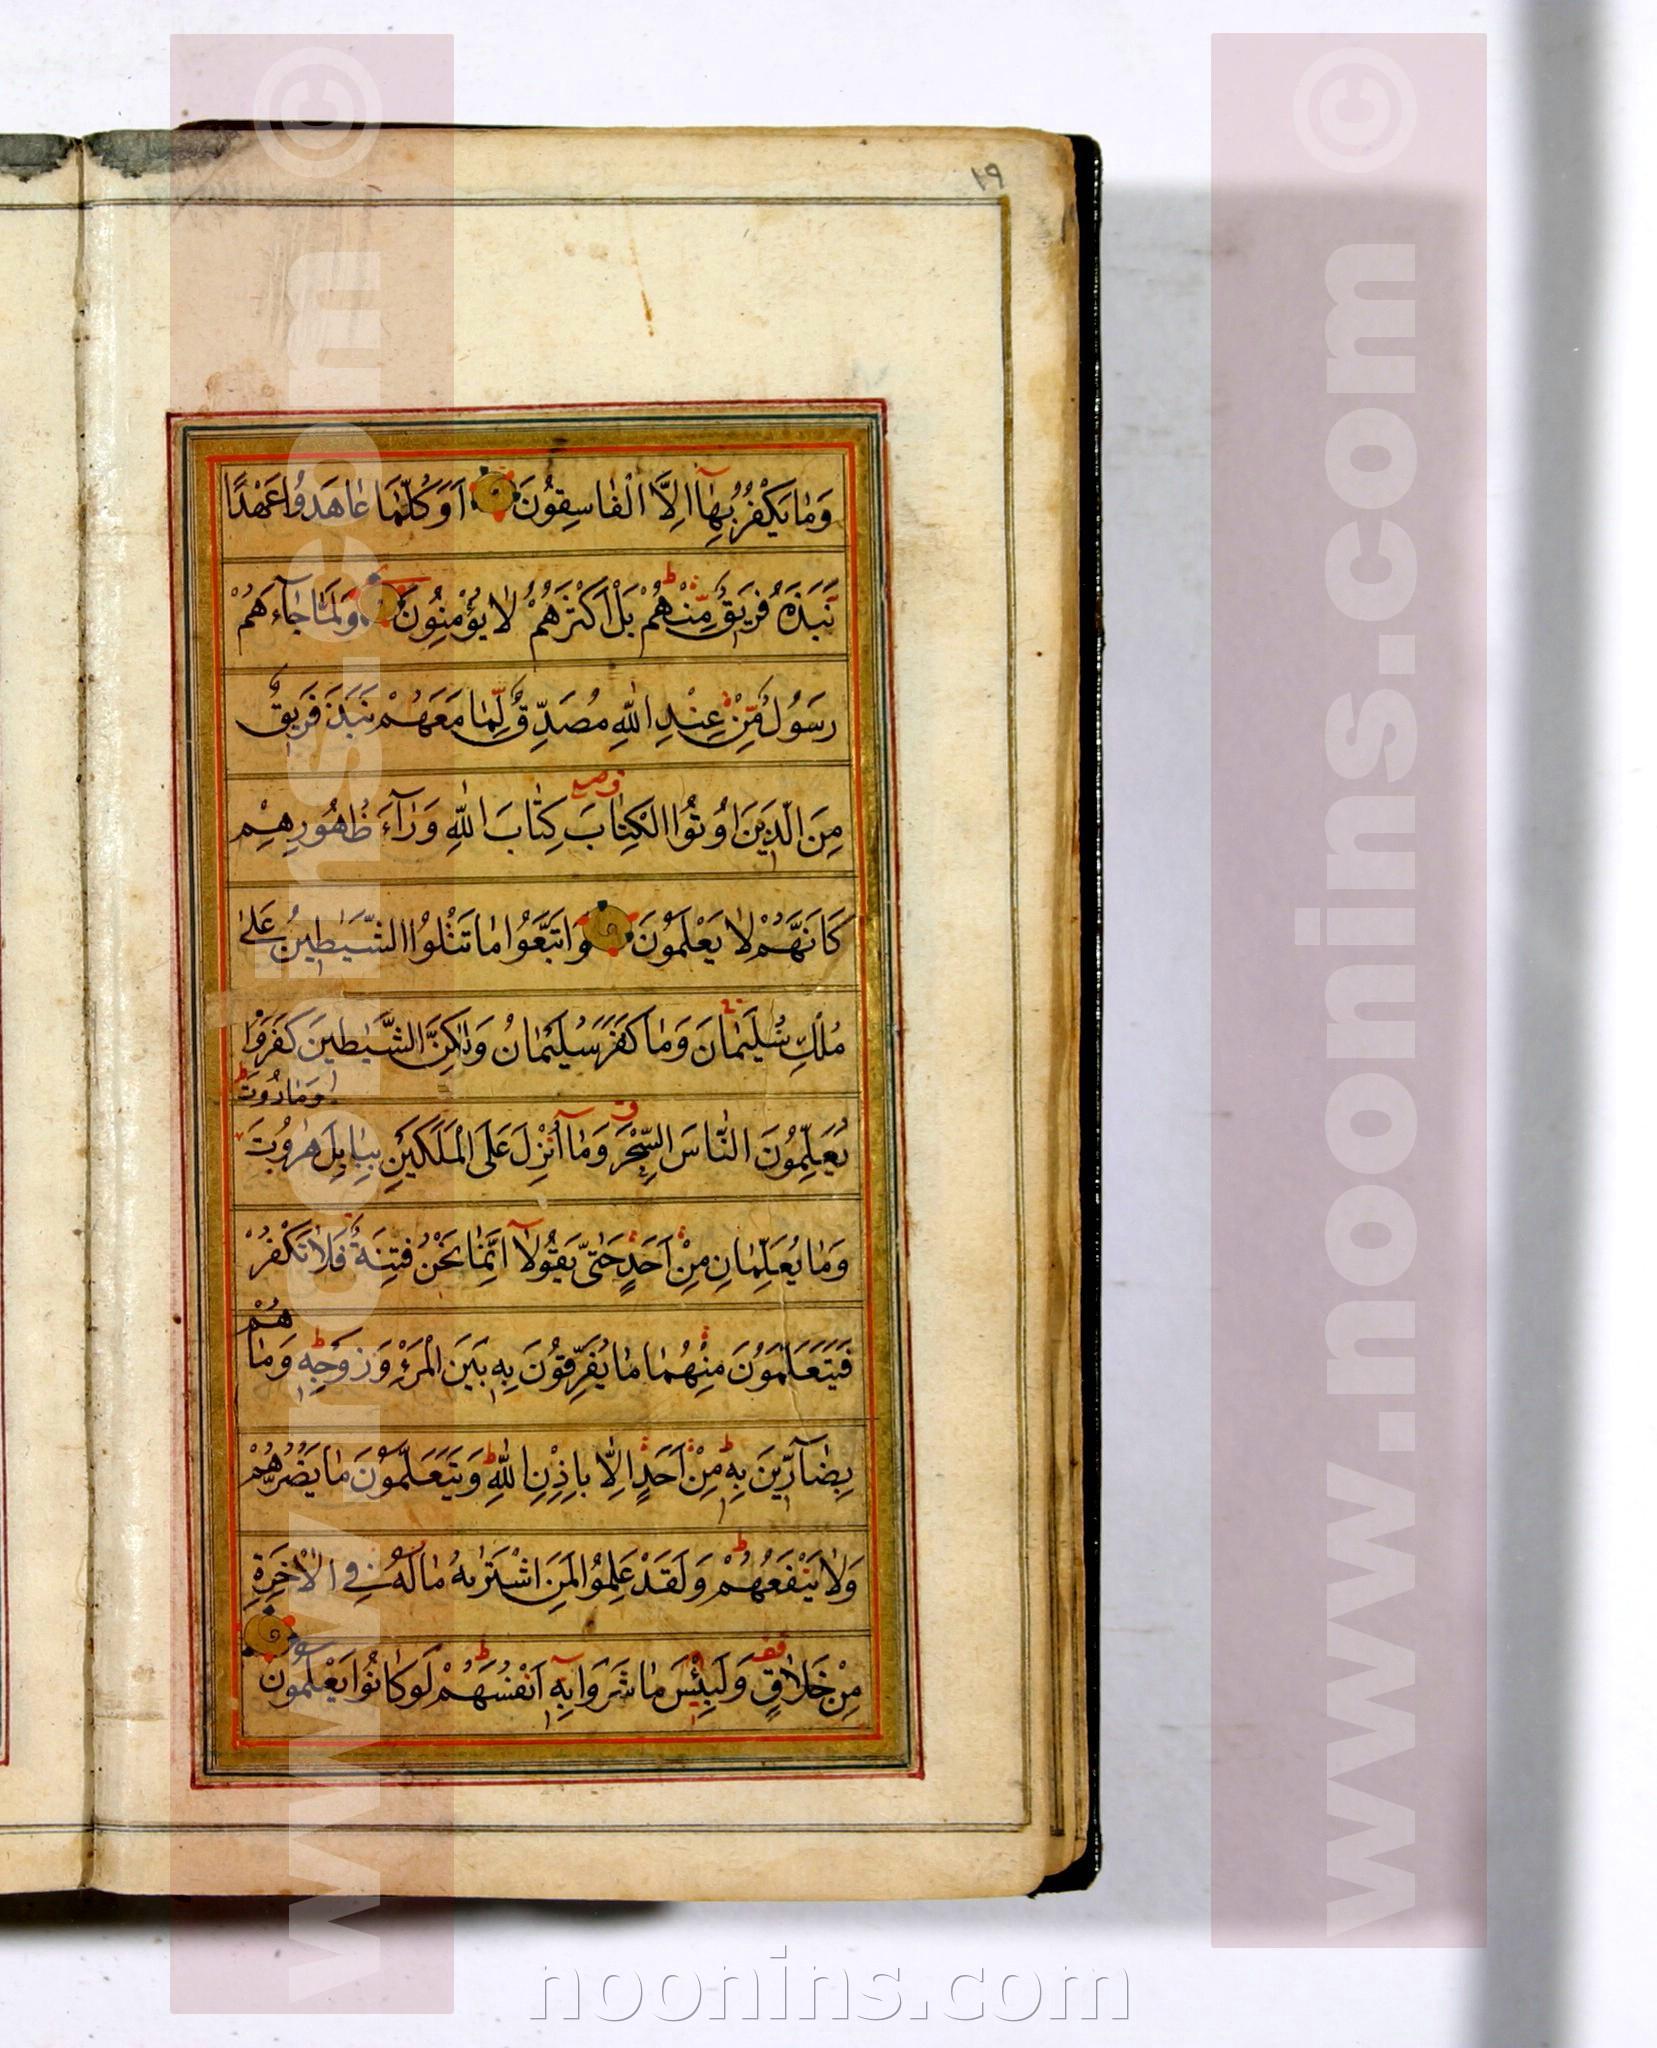 ١٩
وَمٰا يَكْفُرُ بِهٰآ اِلَّا الْفٰاسِقُونَ اَوَكُلَّمٰا عٰاهَدُوا عَهْدًا
نَبَذَهُ فَرِيقٌ مِنْهُمْ بَلْ اَكْثَرُهُمْ لٰا يُؤْمِنُونَ وَلَمّٰا جٰآءَهُمْ
رَسُولٌ مِنْ عِنْدِ اللّٰهِ مُصَدِّقٌ لِمٰا مَعَهُمْ نَبَذَ فَرِيقٌ
مِنَ الَّذِينَ اُوتُوا الْكِتٰابَ كِتٰابَ اللّٰهِ وَرٰآءَ ظُهُورِهِمْ
كَاَنَّهُمْ لٰا يَعْلَمُونَ وَاتَّبَعُوا مٰا تَتْلُوا الشَّيٰطِينُ عَلىٰ
مُلْكِ سُلَيْمٰانَ وَمٰا كَفَرَ سُلَيْمٰانُ وَلٰكِنَّ الشَّيٰطِينَ كَفَرُوا
وَمٰارُوتَ
يُعَلِّمُونَ النّٰاسَ السِّحْرَ وَمٰآ اُنْزِلَ عَلَى الْمَلَكَيْنِ بِبٰابِلَ هٰرُوتَ
وَمٰا يُعَلِّمٰانِ مِنْ اَحَدٍ حَتّٰى يَقُولٰآ اِنَّمٰا نَحْنُ فِتْنَةٌ فَلٰا تَكْفُرْ
هُمْ
فَيَتَعَلَّمُونَ مِنْهُمٰا مٰا يُفَرِّقُونَ بِهِ بَيْنَ الْمَرْءِ وَزَوْجِهِ وَمٰا
بِضٰآرِّينَ بِهِ مِنْ اَحَدٍ اِلّٰا بِاِذْنِ اللّٰهِ وَيَتَعَلَّمُونَ مٰا يَضُرُّهُمْ
وَلٰا يَنْفَعُهُمْ وَلَقَدْ عَلِمُوا لَمَنِ اشْتَرٰىهُ مٰا لَهُ فِي الْاٰخِرَةِ
مِنْ خَلٰاقٍ وَلَبِئْسَ مٰا شَرَوْا بِهِ اَنْفُسَهُمْ لَوْ كٰانُوا يَعْلَمُونَ
www.noonins.com ©
www.noonins.com ©
noonins.com